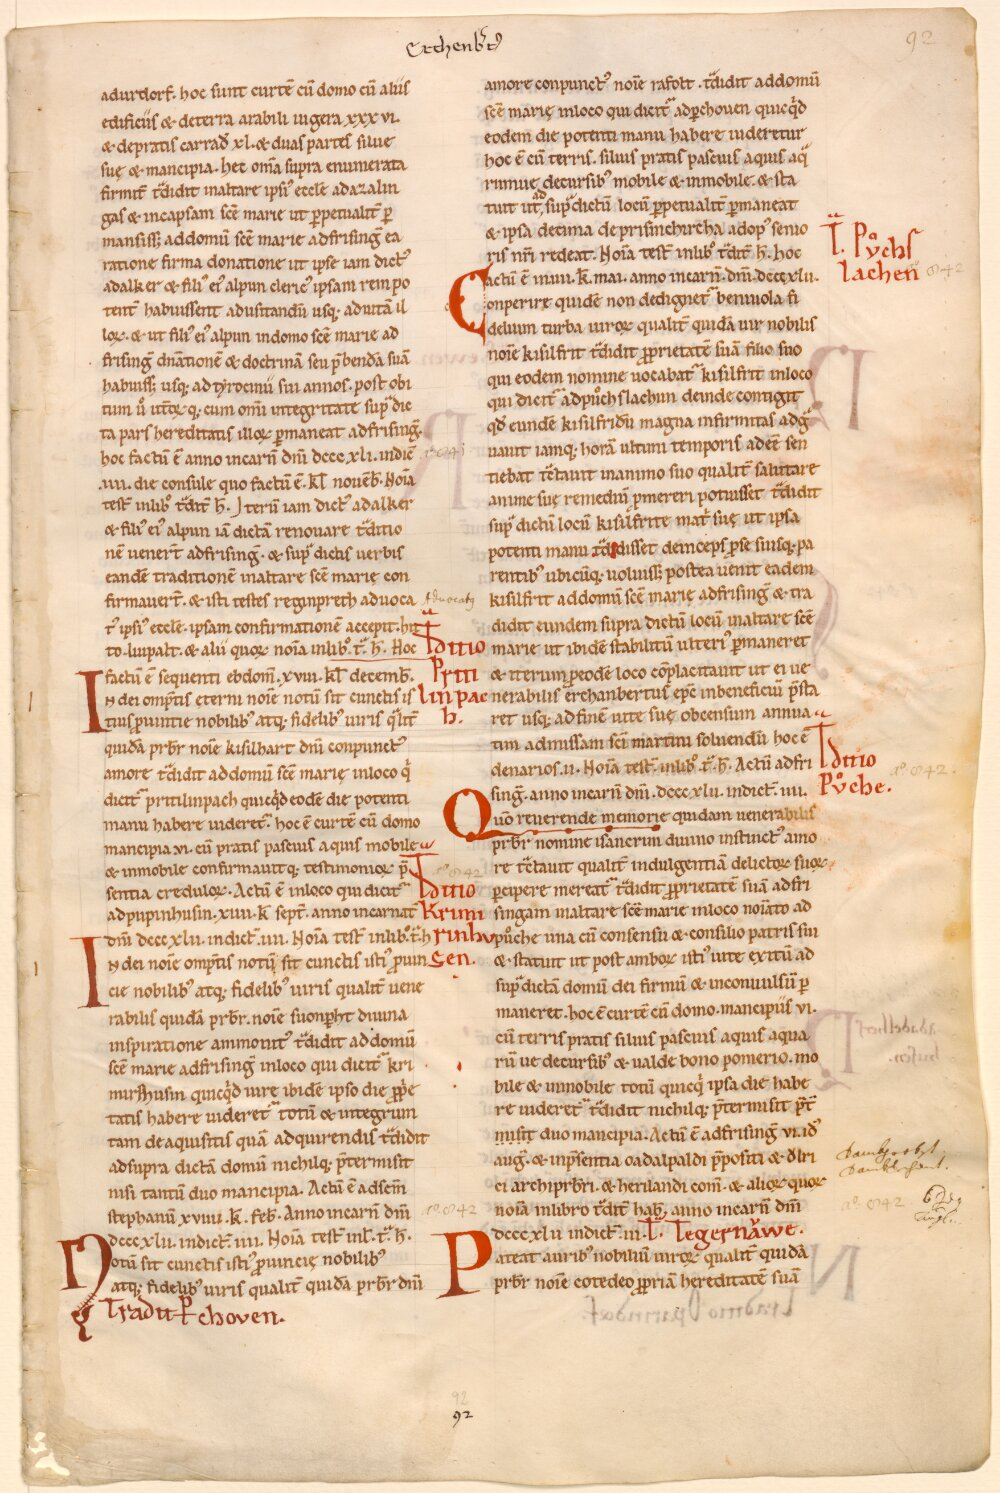 Erchenbtꝰ
92
adurdorf. hoc sunt curtē cū domo cū aliis
edificiis & deterra arabili iugera xxx vi.
& depratis carrad̄ xl. & duas partes silue
sue & mancipia. hec om̄a supra enumerata
firmit̄ t̄didit inaltare ipsiꝰ eccłe adazalin
gas & incapsam scē marie ut ꝑpetualit̄ ꝑ
mansiss; addomū scē marie adfrisinḡ ea
ratione firma donatione ut ipse iam dictꝰ
adalker & filiꝰ eiꝰ alpun clericꝰ ipsam rem po
tent̄ habuissent adusitandū usq; aduitā il
loꝝ. & ut filiꝰ eiꝰ alpun indomo scē marie ad
frisinḡ dn̄ationē & doctrinā seu p̄benda suā
habuiss; usq; ad tyrociniū sui annos. post obi
tum ū utroꝝ q; cum omni integritate sup̄ dic
ta pars hereditatis illoꝝ ꝑmaneat adfrisinḡ.
hoc factū ē anno incarn̄ dn̄i dccc xli. indic̄
.iiii. die consule quo factū ē. kł nouēb̄. Noīa
test̄ inlibꝰ t̄dit̄ h̄. Iterū iam dictꝰ adalker
& filiꝰ eiꝰ alpun iā dictā renouare t̄ditio
nē venert̄ adfrisinḡ. & sup̄ dictis verbis
eandē traditionē inaltare scē marię con
firmauert̄. & isti testes reginprech aduoca
Advocatꝰ
t̄ ipsiꝰ eccłe. ipsam confirmationē accepit. hit
to. liupalt. & alii quoꝝ noīa inlibꝰ. t̄. h̄. Hoc
T̄ditio
Priti
linpac
h.
factū ē sequenti ebdom̄. xviii. kł decemb̄.
In dei omp̄tis eterni noīe notū sit cunctis is
tius ꝓuintie nobilibꝰ atq; fidelibꝰ uiris qłit̄
quidā prb̄r noīe kisilhart dn̄i conpunctꝰ
amore t̄didit addomū scē marię inloco q̄
dicit̄ pritilinpach quicq̄d eodē die potenti
manu habere uideret̄. hoc ē curtē cū domo
mancipia vi. cū pratis pascuis aquis mobile
& inmobile confirmauitq; testimonioꝝ p̄
sentia creduloꝝ. Actū ē inloco qui dicit̄
adpupinhusin. xiiii. k̄ sept̄. anno incarnat̄
dn̄i dccc xlii. indict̄. iiii. Noīa test̄ inlibꝰ. t̄. h̄
T̄ditio
Krimi
rinhv
sen.
In dei noīe omp̄tis notū sit cunctis isti ꝓuin
cie nobilibꝰ atq; fidelibꝰ uiris qualit̄ vene
rabilis quidā prb̄r. noīe suonꝑht diuina
inspiratione ammonitꝰ t̄didit addomū
scē marie adfrisinḡ inloco qui dicit̄ kri
mirshusin quicq̄d iure ibidē ipso die ꝓp̄e
tatis habere uideret̄ totū & integrum
tam deaquisitis quā adquirendis t̄didit
adsupra dictā domū nichilq; p̄termisit
nisi tantū duo mancipia. Actū ē adscm̄
stephanū xviiii. k̄. feb̄. Anno incarn̄ dn̄i
dccc xlii. indict̄. iiii. Noīa test̄ inł. t̄. h̄.
Notū sit cunctis isti ꝓuincię nobilibꝰ
atq; fidelibꝰ uiris qualit̄ quidā prb̄r dn̄i
Tradit Ꝑchoven.
amore conpunctꝰ noīe rafolt. t̄didit addomū
scē marię inloco qui dicit̄ adꝑchoven quicq̄d
eodem die potenti manu habere uideretur
hoc ē cū terris. siluis pratis pascuis aquis aq̄
rumue decursibꝰ mobile & inmobile. & sta
tuit ut ad sup̄ dictū locū ꝑpetualit̄ ꝑmaneat
& ipsa decima de prisinchircha adopꝰ senio
ris nr̄i redeat. Noīa test̄ inlibꝰ t̄dit̄ h̄. hoc
T̄. Pvͦchs
lachen̄
actū ē in iiii. k̄. mai. anno incarn̄ dn̄i. dccc xlii.
Conperire quidē non dedignet̄ beniuola fi
delium turba uiroꝝ qualit̄ quidā uir nobilis
noīe kisilfrit t̄didit ꝓprietatē suā filio suo
qui eodem nomine uocabat̄ kisilfrit inloco
qui dicit̄ adpuͦchslachun deinde contigit
qd̄ eundē kisilfridū magna infirmitas adḡ
uauit iamq; horā ultimi temporis adeē sen
tiebat t̄ctauit inanimo suo qualit̄ salutare
anime sue remediū ꝓmereri potuisset t̄didit
sup̄ dictū locū kisilfrite mat̄ sue ut ipsa
potenti manu t̄didisset deinceps ꝓse suisq; pa
rentibꝰ ubicūq; uoluiss; postea uenit eadem
kisilfrit addomū scē marię adfrisinḡ & tra
didit eundem supra dictū locū inaltare scē
marie ut ibidē stabilitū ulteriꝰ ꝑmaneret
& iterum ꝓeodē loco cōplacitauit ut ei ve
nerabilis erchanbertus ep̄c inbeneficiū p̄sta
ret usq; adfinē uite suę obcensum annua
tim admissam sci martini soluendū hoc ē
denarios. ii. Noīa test̄. inlibꝰ. t̄. h̄. Actū adfri
T̄ditio
Pvͦche.
sinḡ. anno incarn̄ dn̄i. dccc xlii. indict̄. iiii.
Quō reverende memorie quidam uenerabilis
prb̄r nomine isancrim diuino instinctꝰ amo
re t̄ctauit qualit̄ indulgentiā delictoꝝ suoꝝ
ꝑcipere mereat̄ t̄didit ꝓprietatē suā adfri
singam inaltare scē marie inloco noīato ad
puͦche una cū consensu & consilio patris sui
& statuit ut post amboꝝ istiꝰ uite exitū ad
sup̄ dictā domū dei firmū & inconuulsū ꝑ
maneret. hoc ē curtē cū domo. mancipiis vi.
cū terris pratis siluis pascuis aquis aqua
rū ue decursibꝰ & ualde bono pomerio. mo
bile & inmobile totū quicq̄ ipsa die habe
re uideret̄ t̄didit nichilq; p̄termisit p̄t̄
misit duo mancipia. Actū ē adfrisinḡ vi. idꝰ
auḡ. & inp̄sentia oadalpaldi p̄positi & ełri
ci archiprb̄ri. & herilandi com̄. & alioꝝ quoꝝ
noīa inlibro t̄dit̄ hab̄. anno incarn̄ dn̄i
dccc xlii indict̄. iii. T̄. Tegernawe.
Pateat auribꝰ nobiliū uiroꝝ qualit̄ quidā
prb̄r noīe cotedeo ꝓpriā hereditatē suā
92
92